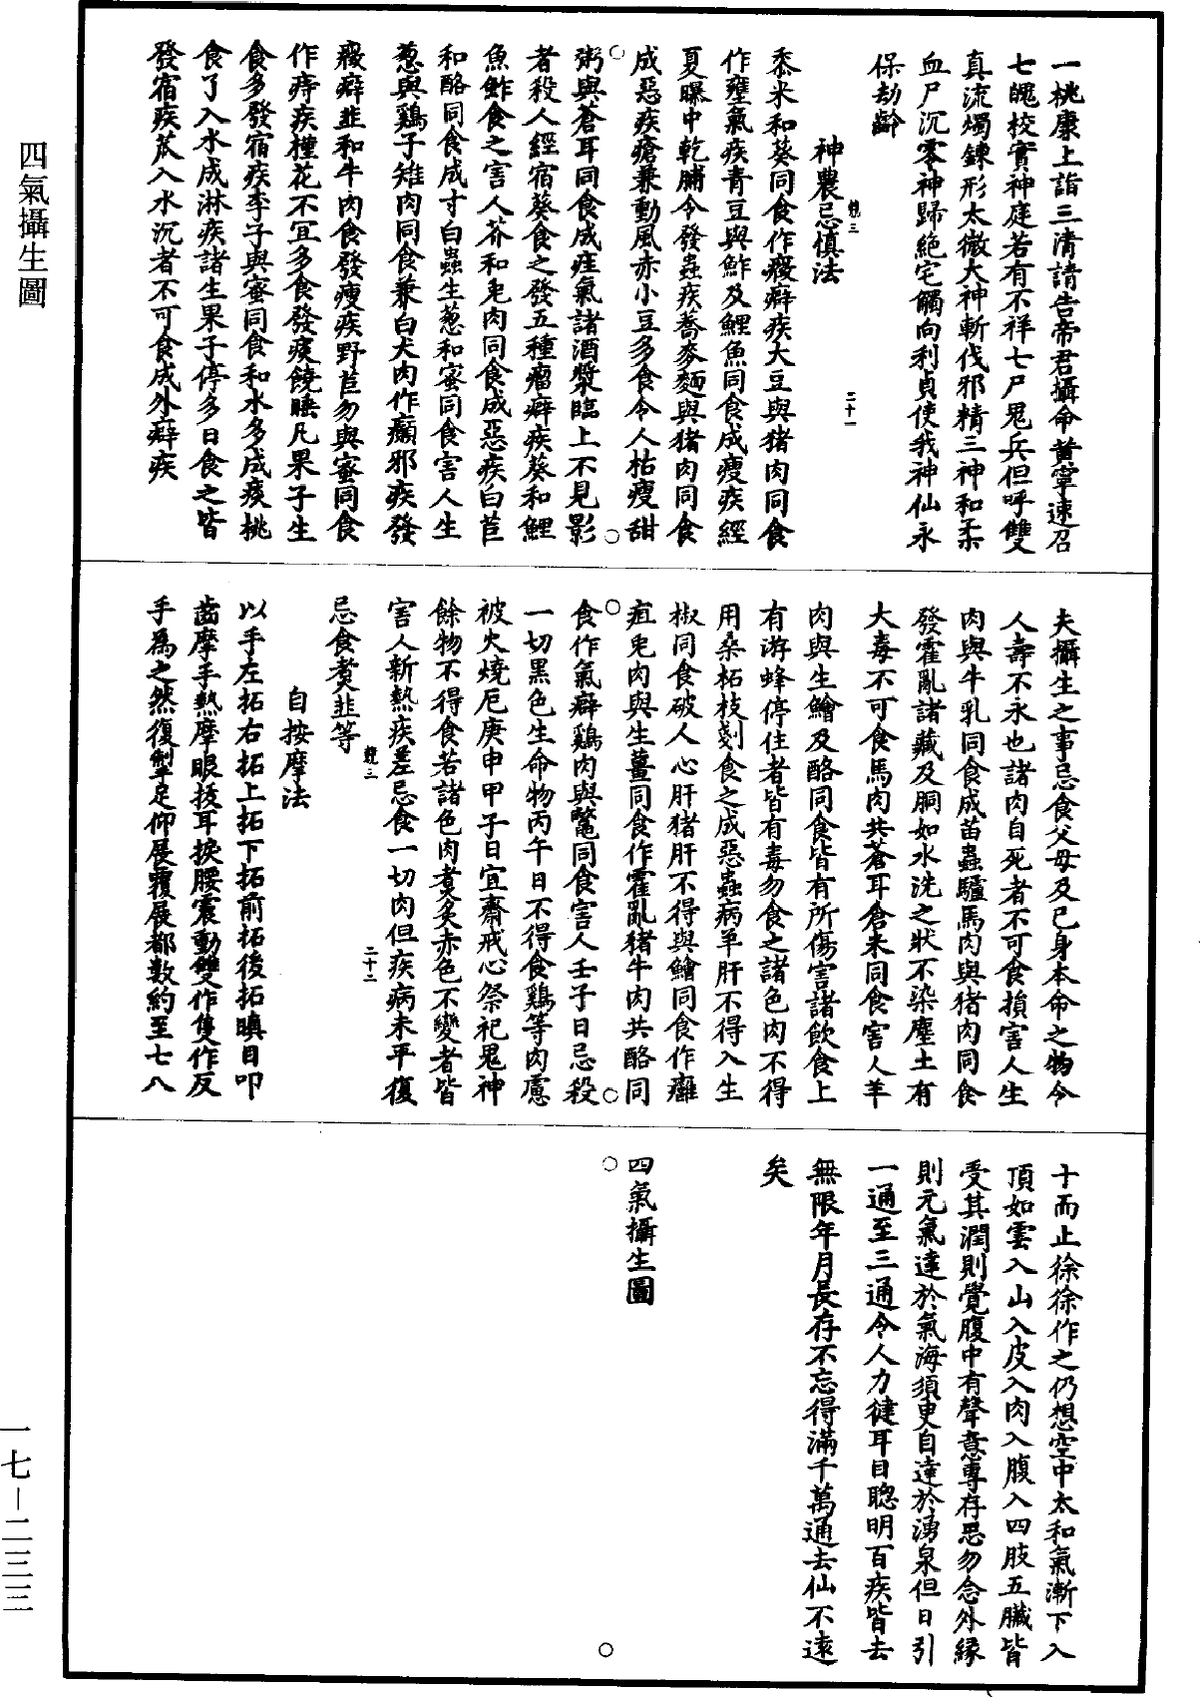 四氣攝生圖
一桃康上詣三清請告帝君攝命黃寧速召
七魄校實神庭若有不祥七尸鬼兵但呼雙
真流燭鍊形太微大神斬伐邪精三神和柔
血尸沉零神歸絶宅觸向利貞使我神仙永
保劫齡
神農忌慎法
競三
二十一
黍米和葵同食作癥癖疾大豆與猪肉同食
作壅氣疾青豆與鮓及鯉魚同食成瘦疾經
夏曝中乾脯令發蟲疾蕎麥麵與猪肉同食
成惡疾瘡兼動風赤小豆多食令人枯瘦甜
粥與蒼耳同食成疰氣諸酒漿臨上不見影
者殺人經宿葵食之發五種瘤癖疾葵和鯉
魚鮓食之害人芥和兎肉同食成惡疾白苣
和酪同食成寸白蟲生葱和蜜同食害人生
葱與鷄子雉肉同食兼白犬肉作癲邪疾發
癥癖韭和牛肉食發瘦疾野苣勿與蜜同食
作痔疾槿花不宜多食發痰饒睡凡果子生
食多發宿疾李子與蜜同食和水多成痰桃
食了入水成淋疾諸生果子停多日食之皆
發宿疾苽入水沉者不可食成外癖疾
夫攝生之事忌食父母及己身本命之物令
人壽不永也諸肉自死者不可食損害人生
肉與牛乳同食成苗蟲驢馬肉與猪肉同食
發霍亂諸藏及胴如水洗之狀不染塵土有
大毒不可食馬肉共蒼耳倉米同食害人羊
肉與生鱠及酪同食皆有所傷害諸飲食上
有游蜂停住者皆有毒勿食之諸色肉不得
用桑柘枝剗食之成惡蟲病羊肝不得入生
椒同食破人心肝猪肝不得與鱠同食作癰
疽兎肉與生薑同食作霍亂猪牛肉共酪同
食作氣癖鷄肉與鼈同食害人壬子日忌殺
一切黑色生命物丙午日不得食鷄等肉慮
被火燒厄庚申甲子日宜齋戒心祭祀鬼神
餘物不得食若諸色肉煮炙赤色不變者皆
害人新熱疾差忌食一切肉但疾病未平復
忌食煑韭等
競三
二十二
自按摩法
以手左拓右拓上拓下拓前拓後拓瞋目叩
齒摩手熱摩眼按耳捩腰震動雙作隻作反
手為之然復掣足仰展覆展都數約至七八
十而止徐徐作之仍想空中太和氣漸下入
頂如雲入山入皮入肉入腹入四肢五臟皆
受其潤則覺腹中有聲意專存思勿念外緣
則元氣達於氣海須臾自達於湧泉但日引
一通至三通令人力徤耳目聰明百疾皆去
無限年月長存不忘得滿千萬通去仙不遠
矣
四氣攝生圖
一七—二三三